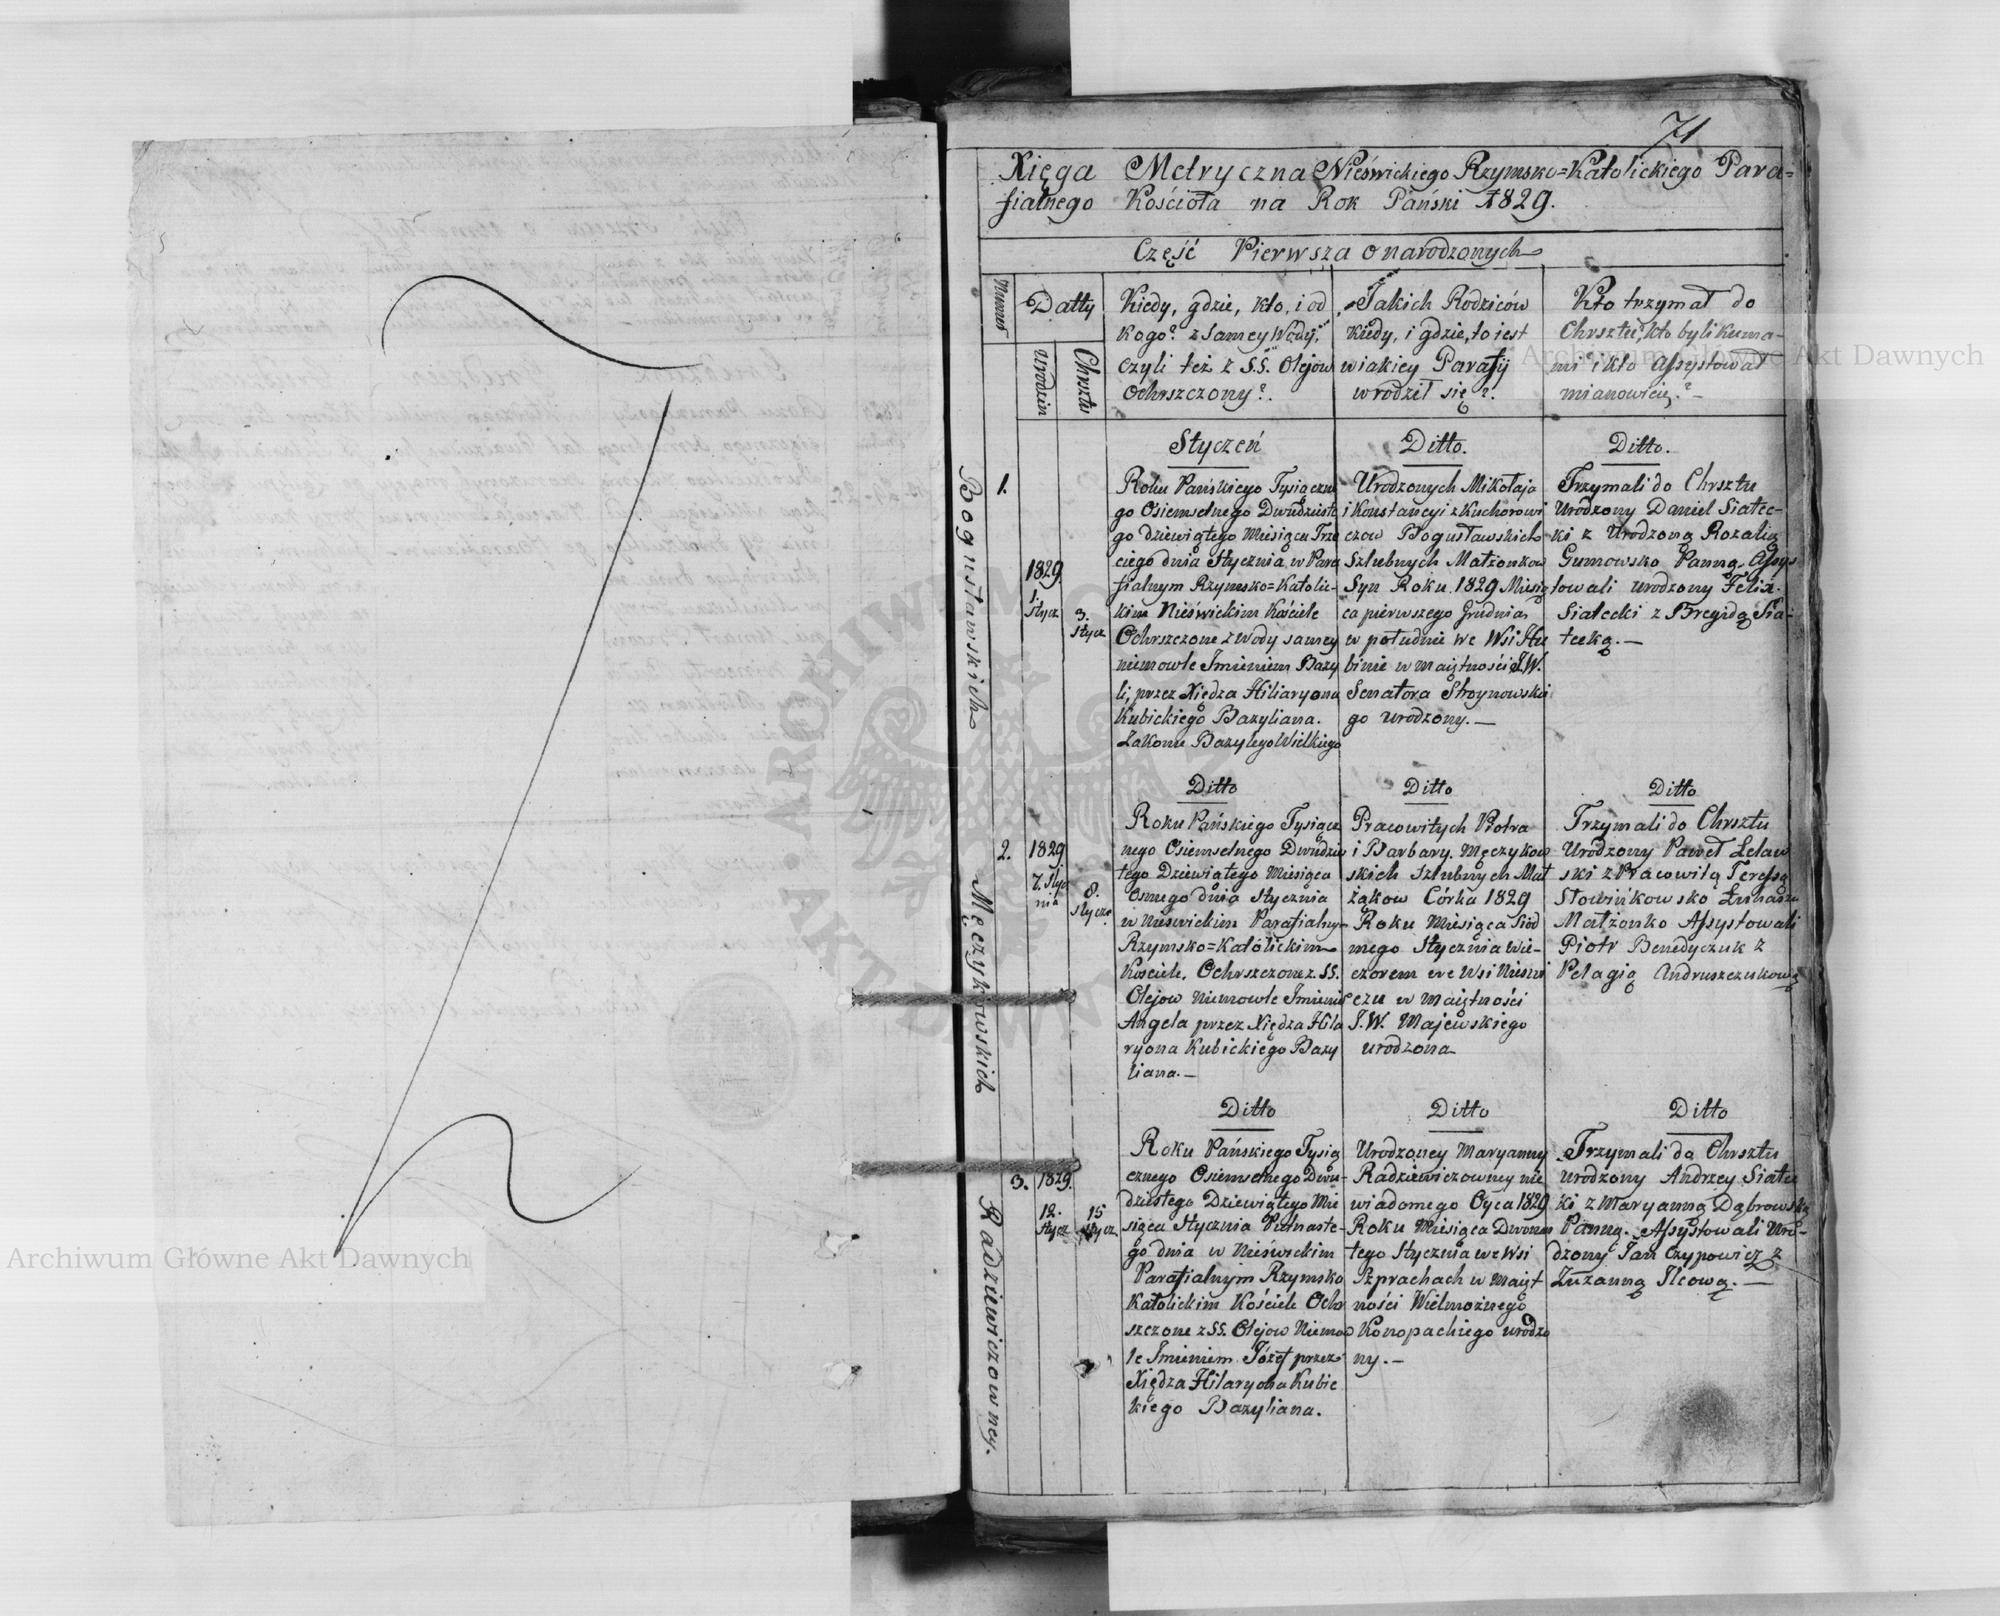 71
Xięga Metryczna Nieświckiego Rzymsko=Katolickiego Para=
fialnego Kościoła na Rok Pański 1829.
Część Pierwsza o narodzonych
Numer
Datty
Urodzin
Chrztu
Kiedy, gdzie, kto, i od
kogo? z samey Wody,
czyli też z S.S. Olejow
Ochrszczony?.
Jakich Rodziców
kiedy, i gdzie, to jest
w iakiey Parafij
wrodził się?.
Kto trzymał do
Chrsztu? kto byli kuma-
mi i kto Assystował
mianowicie?-
Bogusławskich
1.
1829
1.
Stycz
3.
Stycz
Styczeń
Roku Pańskiego Tysiączne
go Osiemsetnego Dwudzieste
go dziewiątego Miesiąca Trze
ciego dnia Stycznia, w Para
fialnym Rzymsko=Katolic-
kim Nieświckim Kościele
Ochrszczone z Wody samey
niemowle Imieniem Bazy
li, przez Xiędza Hiliaryona
Kubickiego Bazyliana.
Zakonu Bazylego Wielkiego
Ditto.
Urodzonych Mikołaja
i Konstancyi z Kuchorowi
czow Bogusławskich
Szlubnych Małżonkow
Syn Roku 1829 Miesią
ca pierwszego Grudnia
w południe we Wsi Hu
binie w maiętności J.W.
Senatora Stroynowskie
go urodzony.—
Ditto.
Trzymali do Chrsztu
Urodzony Daniel Siatec-
ki z Urodzoną Rozalią
Gumowsko Panną. Assys
towali urodzony Felix
Siatecki z Brygidą Sia-
tecką.—
Męczykowskich
2.
1829
7. Stycz
nia
8.
Stycz.
Ditto
Roku Pańskiego Tysiącz
nego Osiemsetnego Dwudzies
tego Dziewiątego Miesiąca
Osmego dnia Stycznia
w Nieświckim Parafialny-
Rzymsko=Katolickim
Kościele, Ochrszczone z SS.
Olejow Niemowle Imienie
Angela przez Xiędza Hila
ryona Kubickiego Bazy
liana.—
Ditto
Pracowitych Piotra
i Barbary. Męczykow
skich Szlubnych Mał
żąkow Córka 1829
Roku Miesiąca Siód
mego Stycznia Wie-
czorem we Wsi Nieswi
czu w maiętności
J.W. Majewskiego
urodzona
Ditto
Trzymali do Chrsztu
Urodzony Paweł Zelaw
ski z Pracowitą Teressą
Słowińkowsko
Małżonko Assystowali
Piotr Benedyczuk z
Pelagią Andruszczukową
Radziewiczowney.
3.
1829.
12.
Stycz
15
Stycz
Ditto
Roku Pańskiego Tysią
cznego Osiemsetnego Dwu-
dziestego Dziewiątego Mie
siąca Stycznia Pietnaste-
go dnia w Nieświckim
Parafialnym Rzymsko
Katolickim Kościele Ochr
szczone z SS. Olejow Niemow
le Imieniem Józef przez
Xiędza Hilaryona Kubic
kiego Bazyliana.
Ditto
Urodzoney Maryanny
Radziewiczowney nie
wiadomego Oyca 1829
Roku Miesiąca Dwonas
tego Stycznia we Wsi
Szprachach w Maięt
ności Wielmożnego
Konopackiego urodzo
ny.—
Ditto
Trzymali do Chrsztu
urodzony Andrzey Siatec
ki z Maryanną Dąbrowską
Panną. Assystowali Uro-
dzony Jan Czypowicz z
Zuzanną Ilcową.—
Archiwum Główne Akt Dawnych
Archiwum Główne Akt Dawnych